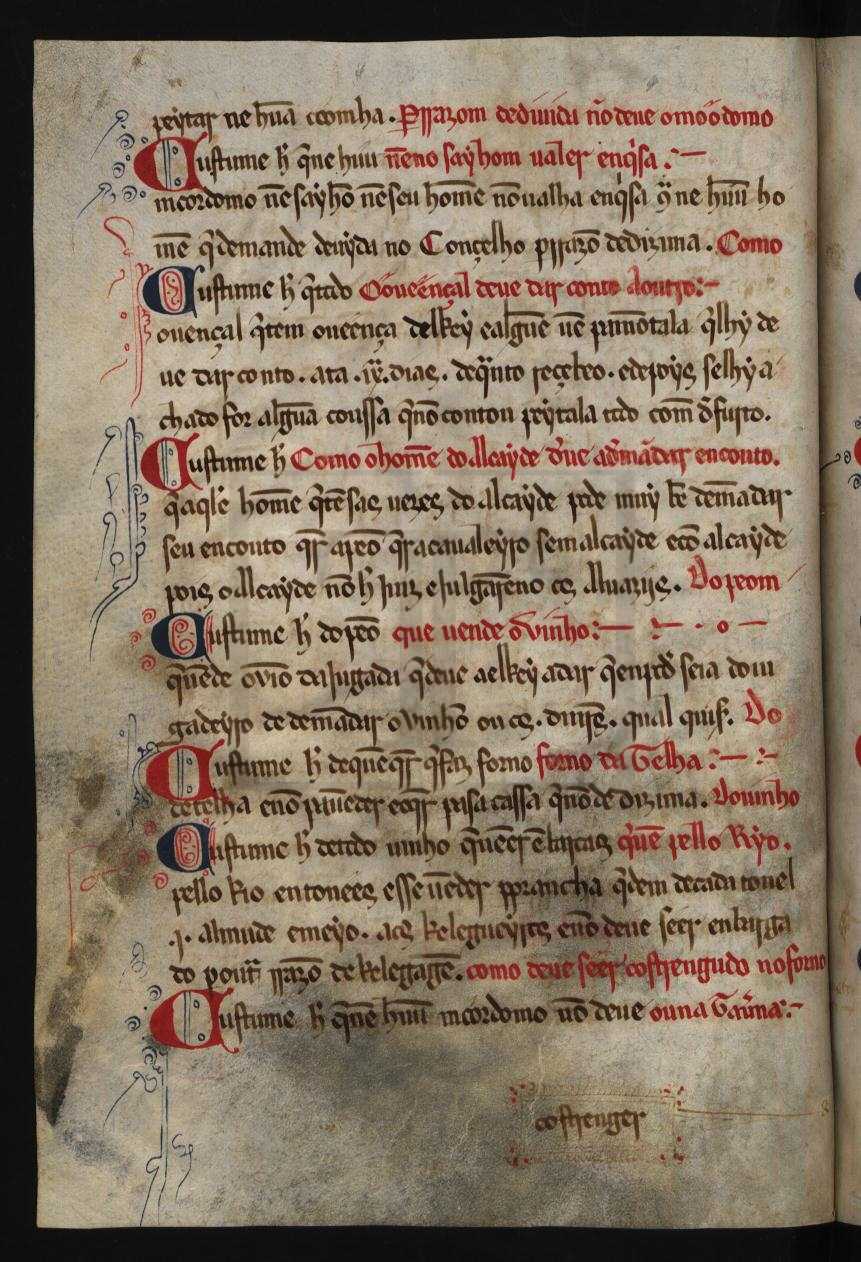 peytar ne hũa coomha. Prrazom dediuida nõ deue omoõdomo
Custume h̃ q̃ ne huu nẽ no sayhom ualer enq̃sa.
mcordomo nẽ sayhõ nẽ seu home nõ ualha enq̃sa q̃ ne huũ ho
me q̃ demande deuyda no Conçelho prrazõ dedizima. Como
Custume h̃ q̃ todo Oouẽençal deue dar conto doutro.
ouençal q̃ tem oueença delRey e algũe uẽ p q̃ lhy de
ue dar conto. ata dias. deq̃nto reçebeo. edepoys selhy a
chado for algũa coussa q̃ nõ contou peytala todo com õ furto.
Custume h̃ Como õ home do Alcayde deue adẽmãdar enconto.
q̃ aq̃le home q̃ tẽ sas uezes do alcayde pode muy bẽ dẽmãdar
seu enconto q̃r apeõ q̃r acaualeyro sem alcayde e cõ alcayde
pois o Alcayde nõ h̃ juiz e julgarẽno os Aluazijs. Do peom
Custume h̃ do peõ que uende õ vinho:
q̃ uẽde o vỹo da jugada q̃ deue a elRey a dar q̃ en seia do iu
gadeyro de demãdar o vinho ou os. dinrs̃. qual quis̃. Do
Custume h̃ de quẽ q̃r q̃ faz forno forno da Telha:
de telha e nõ p uẽder e oq̃r pasa cassa q̃ nõ dẽ dizima. Do uinho
Custume h̃ de todo uinho q̃ ueẽer ẽ barcas q̃ uẽ pello Ryo.
pello Rio entonces esse uẽder pprancha q̃ dem de cada tonel
.j. almude e meyo. aos Relegueyros e nõ deue seer enbarga
do por rrazõ de Relegagẽ. como deue seer costrengudo no forno
Custume h̃ q̃ nẽ huũ mcordomo nõ deue ou na
costrenger